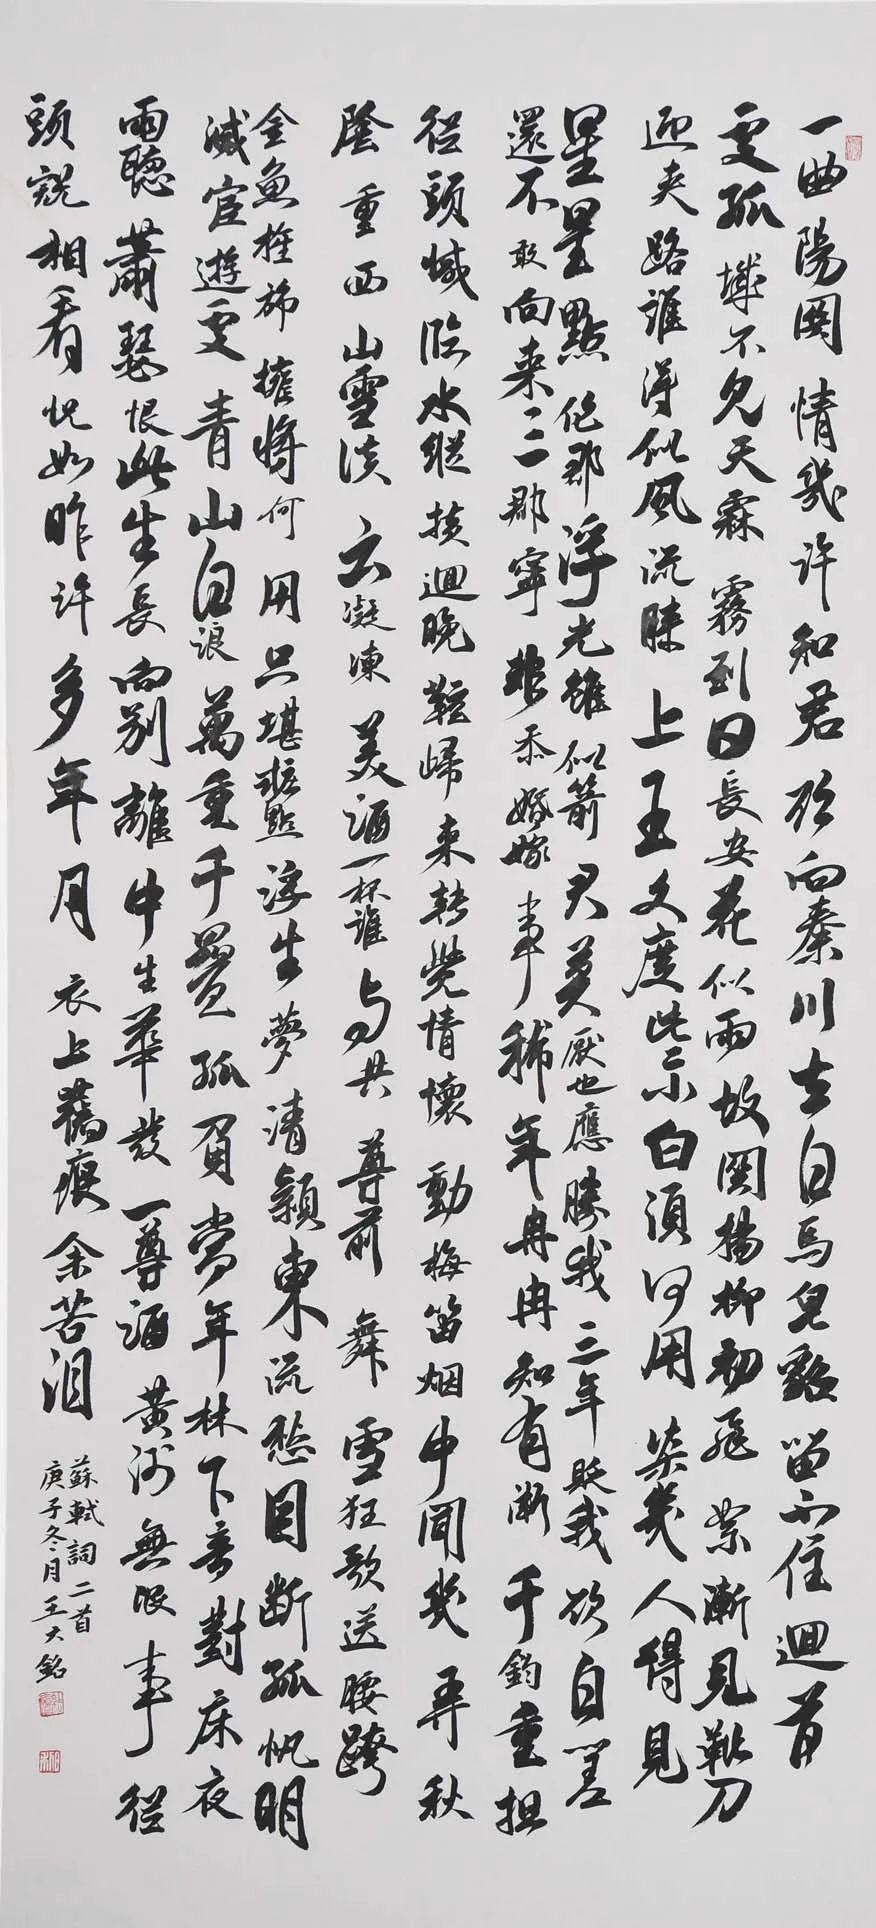 一曲陽関情幾許知君欲向秦川去白馬皂貂留不住迴首
處孤城不見天霖霧到日長安花似雨故関楊柳初飛絮漸見靴刀
迎夾路誰得似風流膝上王文度些小白須何用染幾人得見
星星點作郡浮光雖似箭君莫厭也應勝我三年貶我欲自嗟
還不敢向来三郡寧非忝婚嫁事稀年冉冉知有漸千鈞重担
從頭減臨水縱橫迴晚鞚歸来轉覺情懷動梅笛烟中聞幾弄秋
陰重西山雪淡云凝凍美酒一杯誰與共尊前舞雪狂歌送腰跨
金魚旌旆擁將何用只堪妝點浮生夢清潁東流愁目斷孤帆明
滅宦遊處青山白浪萬重千疊孤負當年林下意對床夜
雨聽蕭瑟恨此生長向别離中生華發一尊酒黃河無限事從
頭說相看恍如昨許多年月衣上舊痕余苦淚
蘇軾詞二首
庚子冬月王大銘